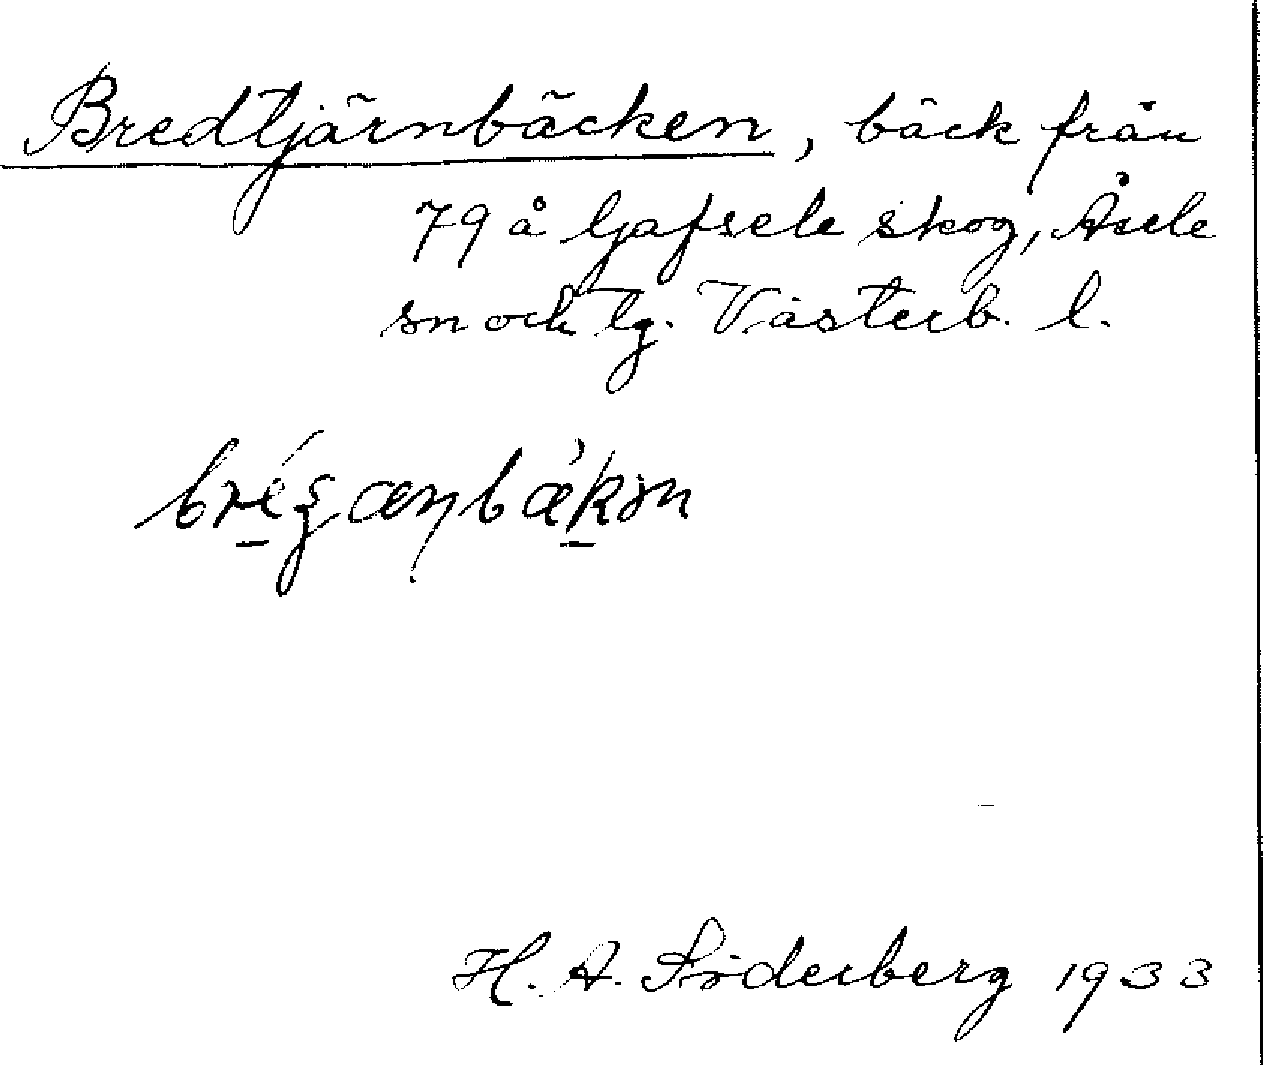 Bredtjärnbäcken, bäck från
79 å Gafsele skog, Åsele
sn och lg. Västerb. l.
H. A. Söderberg 1933